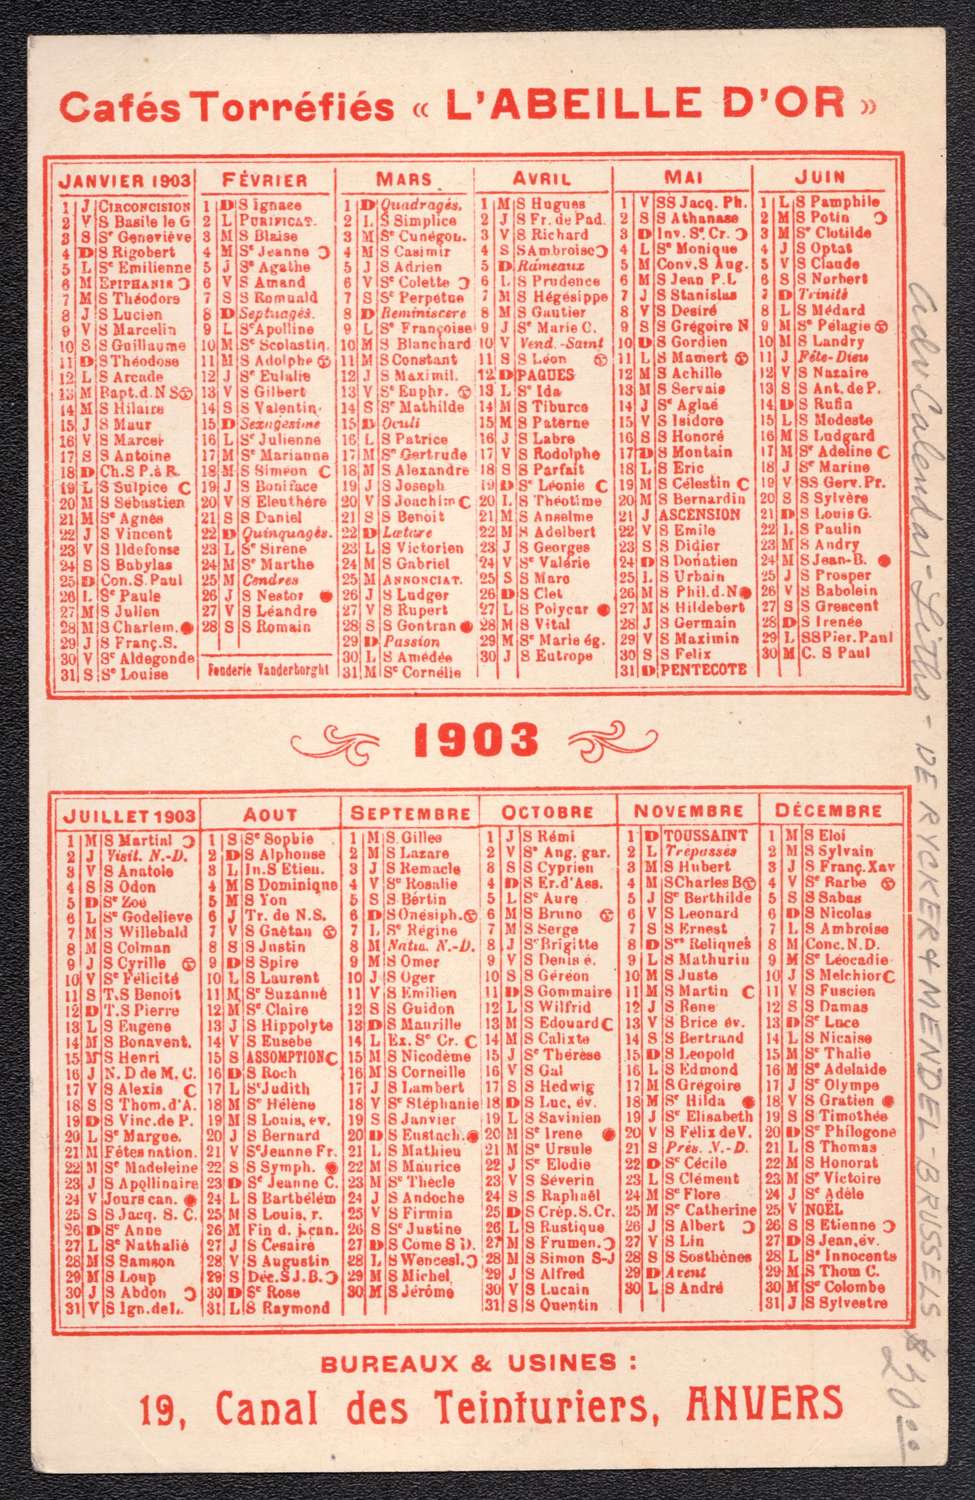 Cafés Torréfiés « L'ABEILLE D'OR »
JANVIER 1903
1 J CIRCONCISION
2 V S Basile le G
3 S Sᵉ Geneviève
4 D S Rigobert
5 L Sᵉ Emilienne
6 M EPIPHANIE
7 M S Théodore
8 J S Lucien
9 V S Marcelin
10 S S Guillaume
11 D S Théodose
12 L S Arcade
13 M Bapt.d.N S
14 M S Hilaire
15 J S Maur
16 V S Marcel
17 S S Antoine
18 D Ch.S P.à R.
19 L S Sulpice
20 M S Sébastien
21 M Sᵉ Agnès
22 J S Vincent
23 V S Ildefonse
24 S S Babylas
25 D Con.S.Paul
26 L Sᵉ Paule
27 M S Julien
28 M S Charlem.
29 J S Franç.S.
30 V Sᵉ Aldegonde
31 S Sᵉ Louise
FÉVRIER
1 D S Ignace
2 L PURIFICAT.
3 M S Blaise
4 M Sᵉ Jeanne
5 J Sᵉ Agathe
6 V S Amand
7 S S Romuald
8 D Septuagés.
9 L Sᵉ Apolline
10 M Sᵉ Scolastiq.
11 M S Adolphe
12 J Sᵉ Eulalie
13 V S Gilbert
14 S S Valentin
15 D Sexagésime
16 L Sᵉ Julienne
17 M Sᵉ Marianne
18 M S Siméon
19 J S Boniface
20 V S Eleuthère
21 S S Daniel
22 D Quinquagés.
23 L Sᵉ Sirene
24 M Sᵉ Marthe
25 M Cendres
26 J S Nestor
27 V S Léandre
28 S S Romain
Fonderie Vanderborght
MARS
1 D Quadragés.
2 L S Simplice
3 M Sᵉ Cunégon.
4 M S Casimir
5 J S Adrien
6 V Sᵉ Colette
7 S Sᵉ Perpétue
8 D Reminiscere
9 L Sᵉ Françoise
10 M S Blanchard
11 M S Constant
12 J S Maximil.
13 V Sᵉ Euphr.
14 S Sᵉ Mathilde
15 D Oculi
16 L S Patrice
17 M Sᵉ Gertrude
18 M S Alexandre
19 J S Joseph
20 V S Joachim
21 S S Benoit
22 D Lætare
23 L S Victorien
24 M S Gabriel
25 M ANNONCIAT.
26 J S Ludger
27 V S Rupert
28 S S Gontran
29 D Passion
30 L S Amédée
31 M Sᵉ Cornélie
AVRIL
1 M S Hugues
2 J S Fr. de Pad.
3 V S Richard
4 S S Ambroise
5 D Rameaux
6 L S Prudence
7 M S Hégésippe
8 M S Gautier
9 J Sᵉ Marie C.
10 V Vend.-Saint
11 S S Léon
12 D PAQUES
13 L Sᵉ Ida
14 M S Tiburce
15 M S Paterne
16 J S Labre
17 V S Rodolphe
18 S S Parfait
19 D Sᵉ Léonie
20 L S Théotime
21 M S Anselme
22 M S Adelbert
23 J S Georges
24 V Sᵉ Valérie
25 S S Marc
26 D S Clet
27 L S Polycar
28 M S Vital
29 M Sᵉ Marie ég.
30 J S Eutrope
MAI
1 V SS Jacq. Ph.
2 S S Athanase
3 D Inv. Sᵉ. Cr.
4 L Sᵉ Monique
5 M Conv.S Aug.
6 M S Jean P.L
7 J S Stanislas
8 V S Désiré
9 S S Grégoire N
10 D S Gordien
11 L S Mamert
12 M S Achille
13 M S Servais
14 J Sᵉ Aglaé
15 V S Isidore
16 S S Honoré
17 D S Montain
18 L S Eric
19 M S Célestin
20 M S Bernardin
21 J ASCENSION
22 V S Emile
23 S S Didier
24 D S Donatien
25 L S Urbain
26 M S Phil.d.N
27 M S Hildebert
28 J S Germain
29 V S Maximin
30 S S Felix
31 D PENTECOTE
JUIN
1 L S Pamphile
2 M S Potin
3 M Sᵉ Clotilde
4 J S Optat
5 V S Claude
6 S S Norbert
7 D Trinité
8 L S Médard
9 M Sᵉ Pélagie
10 M S Landry
11 J Fête-Dieu
12 V S Nazaire
13 S S Ant. de P.
14 D S Rufin
15 L S Modeste
16 M S Ludgard
17 M Sᵉ Adeline
18 J Sᵉ Marine
19 V SS Gerv. Pr.
20 S S Sylvère
21 D S Louis G.
22 L S Paulin
23 M S Andry
24 M S Jean-B.
25 J S Prosper
26 V S Babolein
27 S S Crescent
28 D S Irenée
29 L SS Pier. Paul
30 M C. S Paul
1903
JUILLET 1903
1 M S Martial
2 J Visit. N.-D.
3 V S Anatole
4 S S Odon
5 D Sᵉ Zoé
6 L Sᵉ Godelieve
7 M S Willebald
8 M S Colman
9 J S Cyrille
10 V Sᵉ Félicité
11 S T.S Benoit
12 D T.S Pierre
13 L S Eugène
14 M S Bonavent.
15 M S Henri
16 J N.D de M.C.
17 V S Alexis
18 S S Thom.d'A.
19 D S Vinc.de P.
20 L Sᵉ Margue.
21 M Fêtes nation.
22 M Sᵉ Madeleine
23 J S Apollinaire
24 V Jours can.
25 S S Jacq. S. C.
26 D Sᵉ Anne
27 L Sᵉ Nathalié
28 M S Samson
29 M S Loup
30 J S Abdon
31 V S Ign.de L.
AOUT
1 S Sᵉ Sophie
2 D S Alphonse
3 L In.S Etien.
4 M S Dominique
5 M S Yon
6 J Tr. de N.S.
7 V S Gaëtan
8 S S Justin
9 D S Spire
10 L S Laurent
11 M Sᵉ Suzanne
12 M Sᵉ Claire
13 J S Hippolyte
14 V S Eusebe
15 S ASSOMPTION
16 D S Roch
17 L Sᵉ Judith
18 M Sᵉ Hélène
19 M S Louis, ev.
20 J S Bernard
21 V Sᵉ Jeanne Fr.
22 S S Symph.
23 D Sᵉ Jeanne C.
24 L S Barthélém
25 M S Louis, r.
26 M Fin d. j.can.
27 J S Cesaire
28 V S Augustin
29 S Déc.S J.B.
30 D Sᵉ Rose
31 L S Raymond
SEPTEMBRE
1 M S Gilles
2 M S Lazare
3 J S Remacle
4 V Sᵉ Rosalie
5 S S Bértin
6 D S Onésiph.
7 L Sᵉ Régine
8 M Nativ. N.-D.
9 M S Omer
10 J S Oger
11 V S Emilien
12 S S Guidon
13 D S Maurille
14 L Ex. Sᵉ Cr.
15 M S Nicodème
16 M S Corneille
17 J S Lambert
18 V Sᵉ Stéphanie
19 S S Janvier
20 D S Eustach.
21 L S Mathieu
22 M S Maurice
23 M Sᵉ Thècle
24 J S Andoche
25 V S Firmin
26 S Sᵉ Justine
27 D S Come S D.
28 L S Wencesl.
29 M S Michel
30 M S Jérôme
OCTOBRE
1 J S Rémi
2 V Sˢ Ang. gar.
3 S S Cyprien
4 D S Er.d'Ass.
5 L Sᵉ Aure
6 M S Bruno
7 M S Serge
8 J Sᵉ Brigitte
9 V S Denis é.
10 S S Géréon
11 D S Gommaire
12 L S Wilfrid
13 M S Edouard
14 M S Calixte
15 J Sᵉ Thérèse
16 V S Gal
17 S S Hedwig
18 D S Luc, év.
19 L S Savinien
20 M Sᵉ Irene
21 M Sᵉ Ursule
22 J Sᵉ Elodie
23 V S Séverin
24 S S Raphaël
25 D S Crép.S.Cr.
26 L S Rustique
27 M S Frumen.
28 M S Simon S-J
29 J S Alfred
30 V S Lucain
31 S S Quentin
NOVEMBRE
1 D TOUSSAINT
2 L Trépassés
3 M S Hubert
4 M S Charles B
5 J Sᵉ Berthilde
6 V S Leonard
7 S S Ernest
8 D Sᵉˢ Reliques
9 L S Mathurin
10 M S Juste
11 M S Martin
12 J S Rene
13 V S Brice év.
14 S S Bertrand
15 D S Leopold
16 L S Edmond
17 M S Grégoire
18 M Sᵉ Hilda
19 J Sᵉ Elisabeth
20 V S Félix de V.
21 S Prés. N.-D.
22 D Sᵉ Cécile
23 L S Clément
24 M Sᵉ Flore
25 M Sᵉ Catherine
26 J S Albert
27 V S Lin
28 S S Sosthènes
29 D Avent
30 L S André
DÉCEMBRE
1 M S Eloi
2 M S Sylvain
3 J S Franç.Xav
4 V Sᵉ Barbe
5 S S Sabas
6 D S Nicolas
7 L S Ambroise
8 M Conc.N.D.
9 M Sᵉ Léocadie
10 J S Melchior
11 V S Fuscien
12 S S Damas
13 D Sᵉ Luce
14 L S Nicaise
15 M Sᵉ Thalie
16 M Sᵉ Adelaide
17 J Sᵉ Olympe
18 V S Gratien
19 S S Timothée
20 D Sᵉ Philogone
21 L S Thomas
22 M S Honorat
23 M Sᵉ Victoire
24 J Sᵉ Adèle
25 V NOËL
26 S S Etienne
27 D S Jean,év.
28 L Sˢ Innocents
29 M S Thom C.
30 M Sᵉ Colombe
31 J S Sylvestre
BUREAUX & USINES :
19, Canal des Teinturiers, ANVERS
Adv Calendar - Litho - DE RYCKER & MENDEL - BRUSSELS $20.00